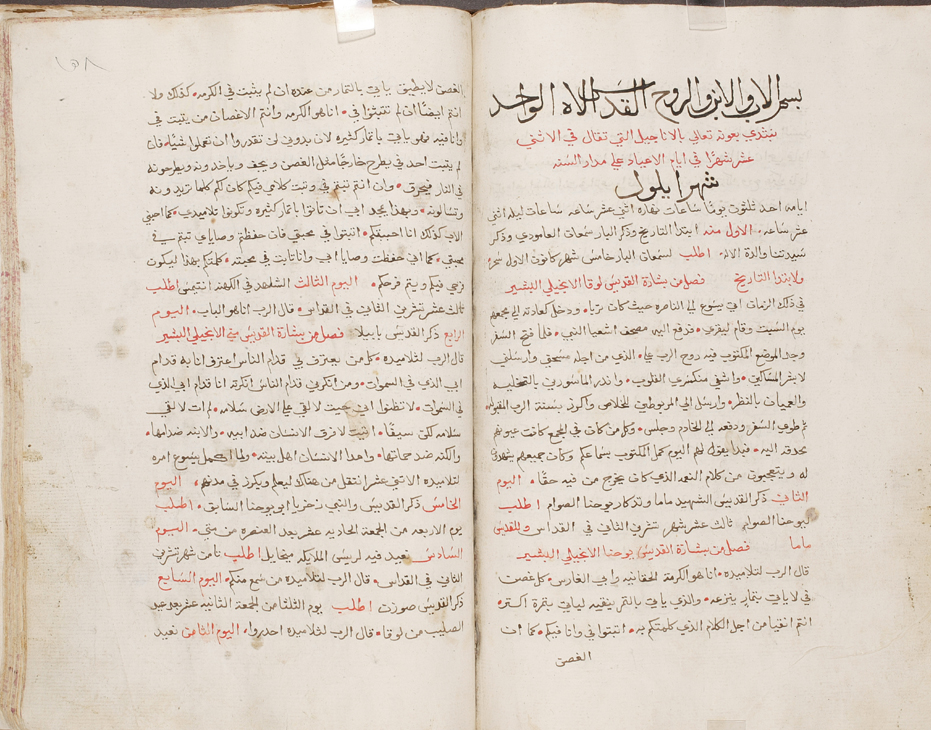 بسم الاب والابن والروح القدس الاه الواحد
نبتدي بعونه تعالي بالاناجيل التي تقال في الاثني
عشر شهرًا في ايام الاعياد علي مدار السنه
شهر ايلول
ايامه احد ثلثون يومًا ساعات نهاره اثني عشر ساعه ساعات ليله اثني
عشر ساعه. الاول منه ابتدا التاريخ وذكر البار سمعان العامودي وذكر
سيدتنا والدة الاله اطلب لسمعان البار خامس شهر كانون الاول سحرًا
ولابتدا التاريخ فصل من بشارة القديس لوقا الانجيلي البشير
في ذلك الزمان اتي يسوع الي الناصره حيث كان تربا. ودخل كعادته الي مجمعهم
يوم السبت وقام ليقري. فدفع اليه مصحف اشعيا النبي. فلما فتح السفر
وجد الموضع المكتوب فيه روح الرب علي. الذي من اجله مسحني وارسلني
لابشر المساكين. واشفي منكسري القلوب. وانذر الماسورين بالتخليه
والعميان بالنظر. وارسل الي المربوطين للخلاص واكرز بسنة الرب المقبوله
ثم طوي السفر ودفعه الي الخادم وجلس. وكل من كان في المجمع كانت عيونهم
محدقه اليه. فبدا يقول لهم اليوم كمل المكتوب بسماعكم وكان جميعهم يشهدون
له ويتعجبون من كلام النعمه الذي كان يخرج من فيه حقًا. اليوم
الثاني ذكر القديس الشهيد ماما وتذكار يوحنا الصوام اطلب
ليوحنا الصوام ثالث عشر شهر تشرين الثاني في القداس وللقديس
ماما فصل من بشارة القديس يوحنا الانجيلي البشير
قال الرب لتلاميذه. انا هو الكرمة الحقانيه وابي الغارس. كل غصن
في لا ياتي بثمار ينزعه. والذي ياتي بالثمر ينقيه لياتي بثمرة اكثر.
انتم انقيا من اجل الكلام الذي كلمتكم به. اثبتوا في وانا فيكم. كما ان
الغصن
١٥٨
الغصن لا يطيق ياتي بالثمار من عنده ان لم يثبت في الكرمه. كذلك ولا
انتم ايضًا ان لم تثبتوا في. انا هو الكرمه وانتم الاغصان من يثبت في
وانا فيه فهو ياتي بثمار كثيره لان بدوني لن تقدروا ان تعملوا شيًا. فان
لم يثبت احد في يطرح خارجًا مثل الغصن ويجف وياخذونه ويطرحونه
في النار فيحرق. وان انتم ثبتم في وثبت كلامي فيكم كان لكم كلما تريدونه
وتسالونه. وبهذا يمجد ابي ان تاتوا باثمار كثيره وتكونوا تلاميذي. كما احبني
الاب كذلك انا احببتكم. اثبتوا في محبتي فان حفظتم وصاياي ثبتم في
محبتي. كما اني حفظت وصايا ابي وانا ثابت في محبته. كلمتكم بهذا ليكون
فرحي فيكم ويتم فرحكم. اليوم الثالث الشاهد في الكهنه انتيمس اطلب
ثالث عشر تشرين الثاني في القداس. قال الرب انا هو الباب. اليوم
الرابع ذكر القديس بابيلا فصل من بشارة القديس متي الانجيلي البشير
قال الرب لتلاميذه. كل من يعترف بي قدام الناس اعترف انا به قدام
ابي الذي في السموات. ومن انكرني قدام الناس انكرته انا قدام ابي الذي
في السموات. لا تظنوا اني جيت لالقي علي الارض سلامه. لم ات لالقي
سلامه لكن سيفًا. اتيت لافرق الانسان ضد ابيه. والابنه ضد امها.
والكنه ضد حماتها. واعدا الانسان اهل بيته. ولما اكمل يسوع امره
لتلاميذه الاثني عشر انتقل من هناك ليعلم ويكرز في مدنهم. اليوم
الخامس ذكر القديس والنبي زخريا ابو يوحنا السابق. اطلب
يوم الاربعه من الجمعة الحاديه عشر بعد العنصره من متي. اليوم
السادس نعيد فيه لريس الملايكه ميخاييل اطلب ثامن شهر تشرين
الثاني في القداس. قال الرب لتلاميذه من سمع منكم. اليوم السابع
ذكر القديس صوزن اطلب يوم الثلثا من الجمعة الثانيه عشر بعد عيد
الصليب من لوقا. قال الرب لتلاميذه احذروا. اليوم الثامن نعيد